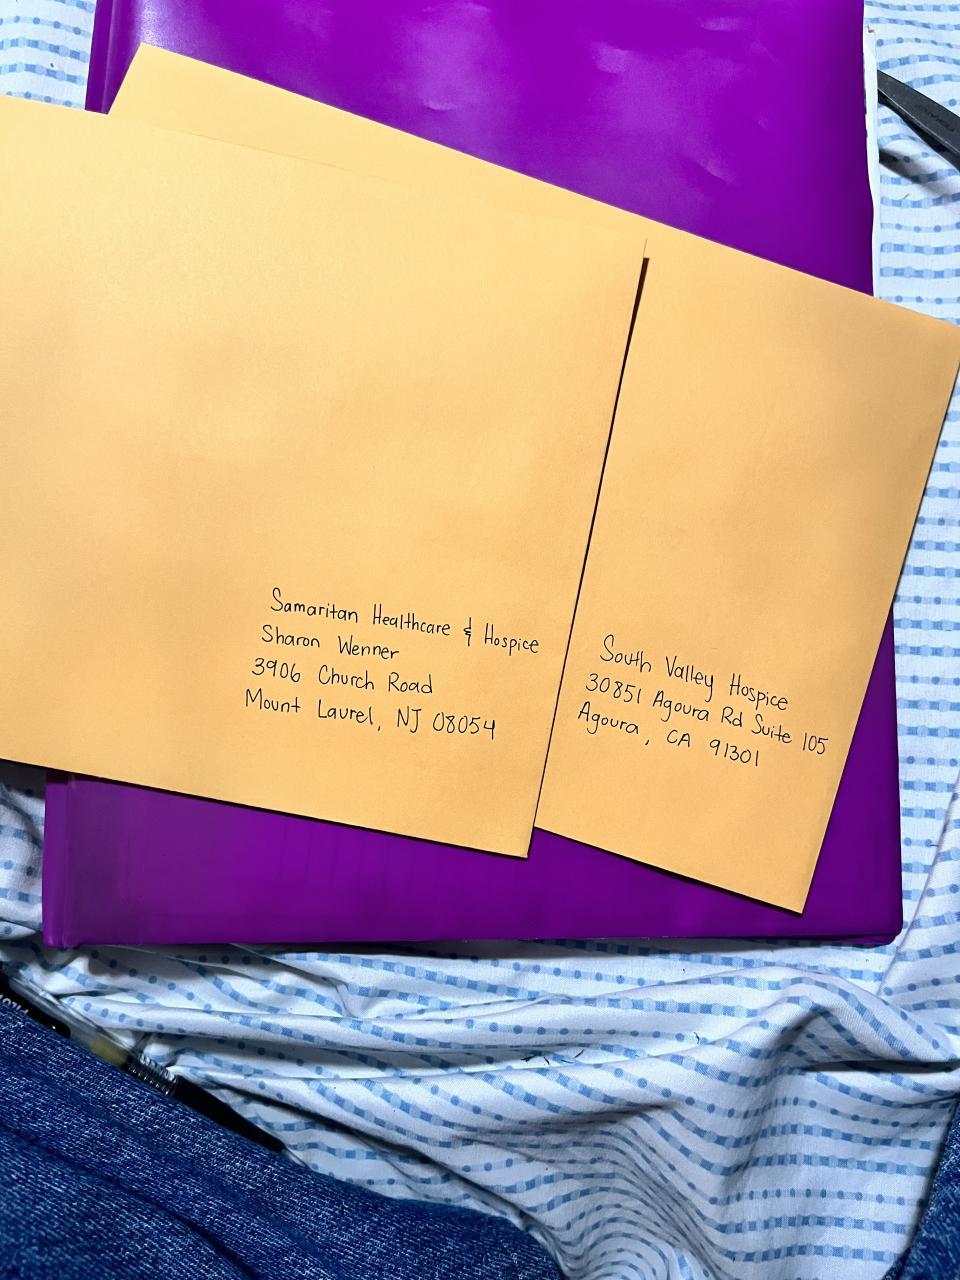 Samaritan Healthcare & Hospice
Sharon Wenner
3906 Church Road
Mount Laurel, NJ 08054
South Valley Hospice
30851 Agoura Rd Suite 105
Agoura, CA 91301